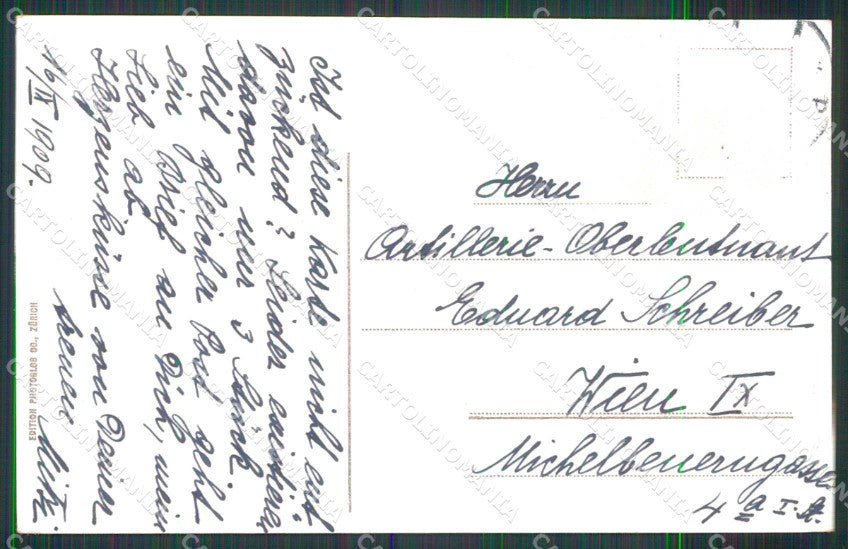 Ist diese Karte nicht ent
zückend? Leider existieren
davon nur 3 Stück.
Mit gleicher Post geht
ein Brief an Dich, mein
Lieb ab.
Herzensküsse von Deiner
treuen Mitzi.
16/IX 1909.
EDITION PHOTOGLOB CO., ZÜRICH
Herrn
Artillerie-Oberleutnant
Eduard Schreiber
Wien IX
Michelbeuerngasse
4 a I. St.
CARTOLINOMANIA